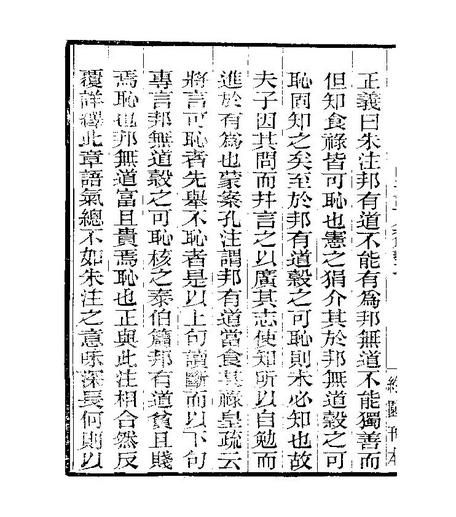 正義曰朱注邦有道不能有爲邦無道不能獨善而
但知食祿皆可恥也憲之狷介其於邦無道穀之可
恥固知之矣至於邦有道穀之可恥則未必知也故
夫子因其問而幷言之以廣其志使知所以自勉而
進於有爲也蒙案孔注謂邦有道當食其祿皇疏云
將言可恥者先舉不恥者是以上句讀斷而以下句
專言邦無道穀之可恥核之泰伯篇邦有道貧且賤
焉恥也邦無道富且貴焉恥也正與此注相合然反
覆詳繹此章語氣總不如朱注之意味深長何則以